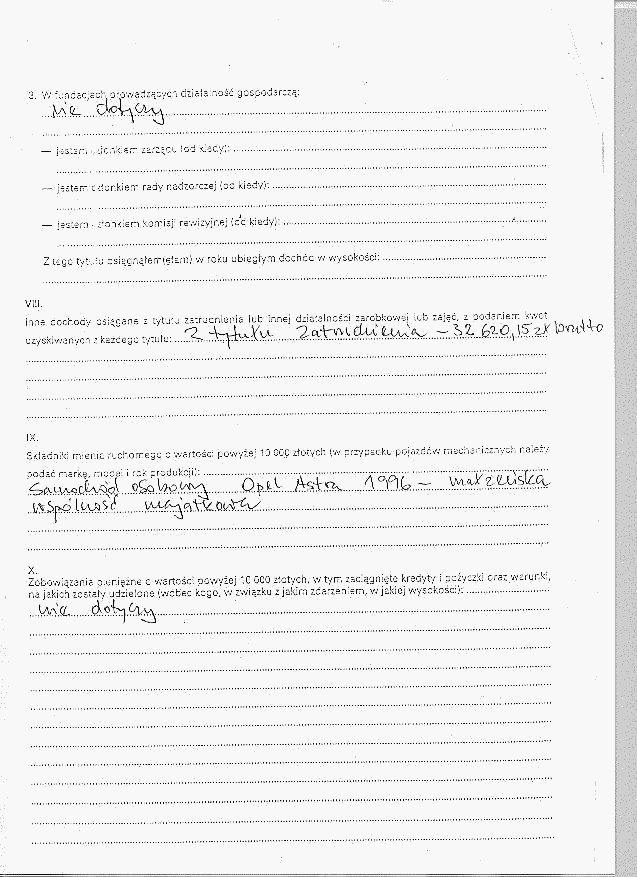 3. W fundacjach prowadzących działalność gospodarczą:
nie dotyczy
— jestem członkiem zarządu (od kiedy):
— jestem członkiem rady nadzorczej (od kiedy):
— jestem członkiem komisji rewizyjnej (od kiedy):
Z tego tytułu osiągnąłem(ęłam) w roku ubiegłym dochód w wysokości:
VIII.
Inne dochody osiągane z tytułu zatrudnienia lub innej działalności zarobkowej lub zajęć, z podaniem kwot
uzyskiwanych z każdego tytułu: Z tytułu zatrudnienia – 32 620,15 zł brutto
IX.
Składniki mienia ruchomego o wartości powyżej 10 000 złotych (w przypadku pojazdów mechanicznych należy
podać markę, model i rok produkcji):
Samochód osobowy Opel Astra 1996 – małżeńska
wspólność majątkowa
X.
Zobowiązania pieniężne o wartości powyżej 10 000 złotych, w tym zaciągnięte kredyty i pożyczki oraz warunki,
na jakich zostały udzielone (wobec kogo, w związku z jakim zdarzeniem, w jakiej wysokości):
nie dotyczy